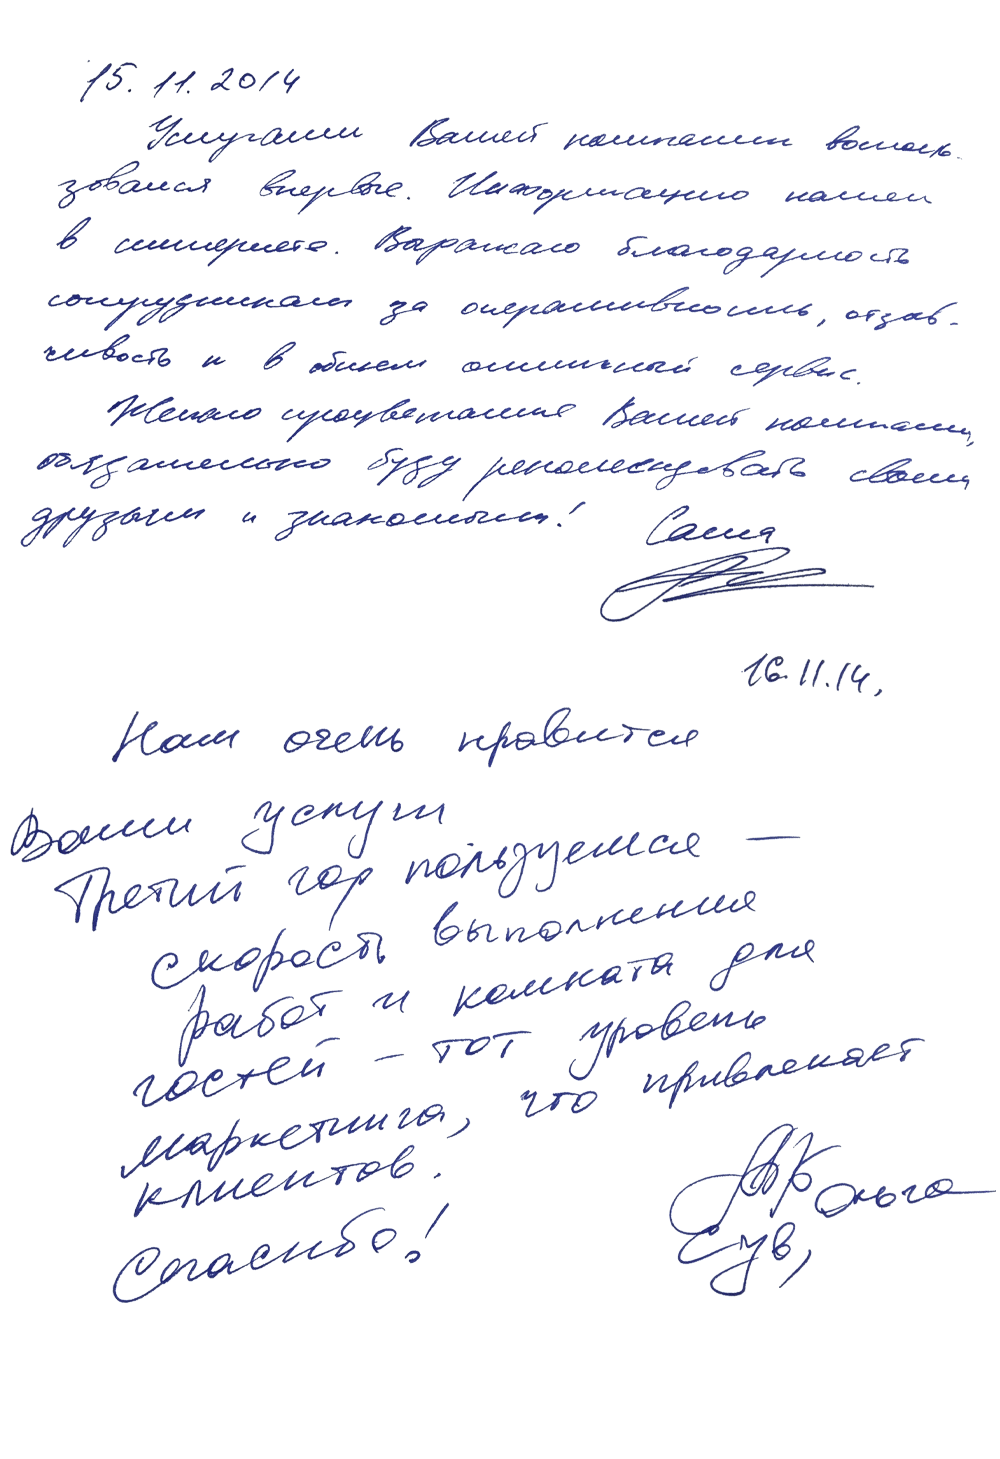 15.11.2014
Услугами Вашей компании восполь-
зовался впервые. Информацию нашел
в интернете. Выражаю благодарность
сотрудникам за оперативность, отзыв-
чивость и в общем отличный сервис.
Желаю процветания Вашей компании,
обязательно буду рекомендовать своим
друзьям и знакомым!
Саша
16.11.14,
Нам очень нравится
Ваши услуги
Третий год пользуемся —
скорость выполнения
работ и комната для
гостей – тот уровень
маркетинга, что привлекает
клиентов.
Спасибо!
Ольга